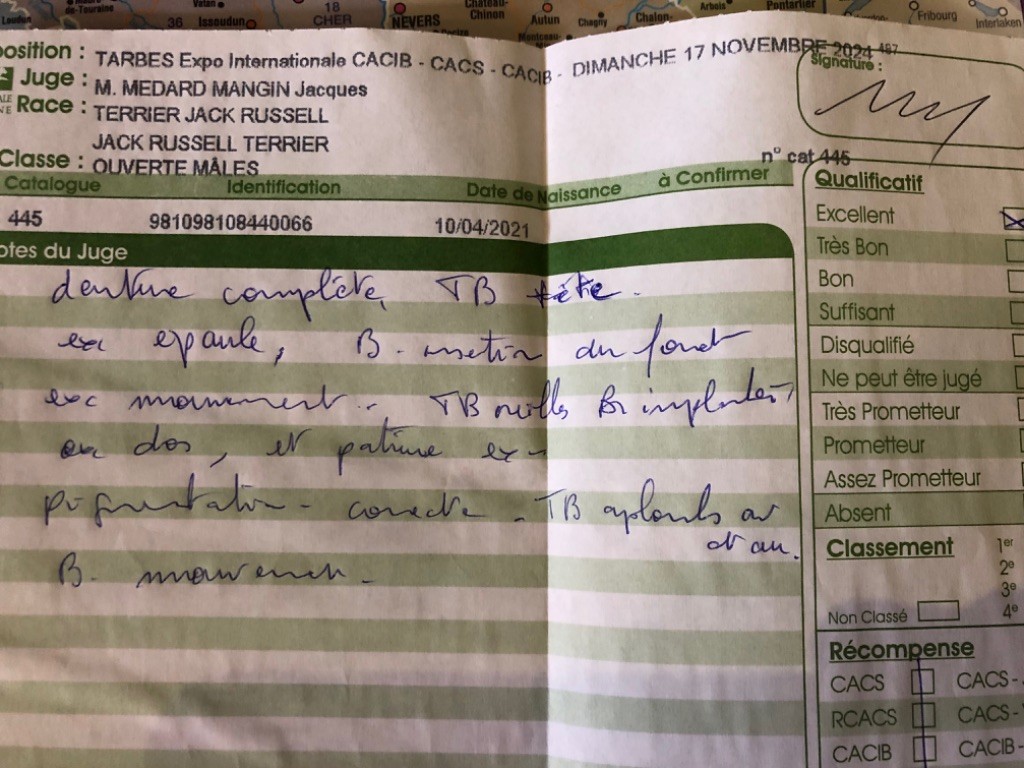 Loudun
de-Touraine
Vatan
36
Issoudun
18
CHER
NEVERS
Château-
Chinon
Autun
Chagny
Chalon-
Arbois
Pontarlier
Fribourg
Interlaken
position : TARBES Expo Internationale CACIB - CACS - CACIB - DIMANCHE 17 NOVEMBRE 2024 487
Juge : M. MEDARD MANGIN Jacques
Signature :
Race : TERRIER JACK RUSSELL
JACK RUSSELL TERRIER
Classe : OUVERTE MÂLES
n° cat 445
Catalogue Identification Date de Naissance à Confirmer
445 981098108440066 10/04/2021
otes du Juge
denture complète, TB tête.
exc epaule, B. du fouet
exc mouvement. TB implantés,
dos, et
pigmentation - correcte - TB aplombs av
et arr.
B. mouvement.
Qualificatif
Excellent
Très Bon
Bon
Suffisant
Disqualifié
Ne peut être jugé
Très Prometteur
Prometteur
Assez Prometteur
Absent
Classement 1er
2e
3e
Non Classé 4e
Récompense
CACS CACS-
RCACS CACS-
CACIB CACIB-